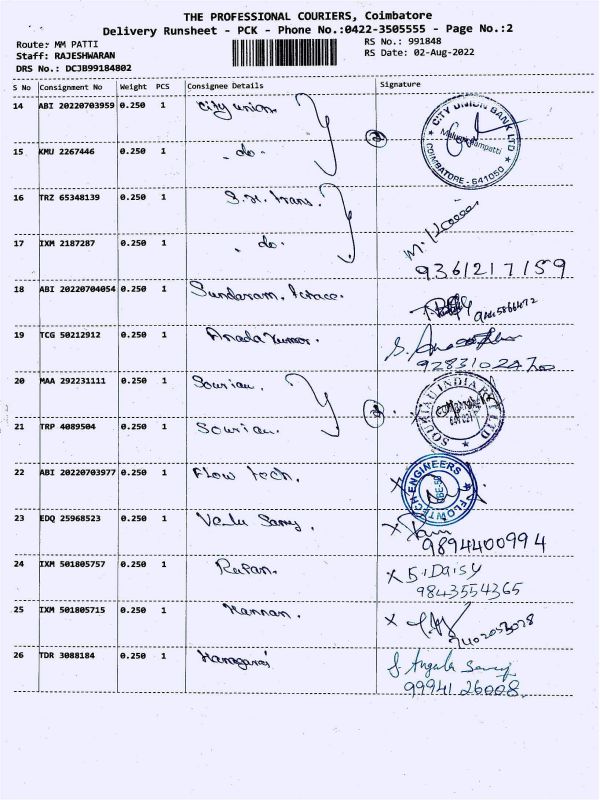 THE PROFESSIONAL COURIERS, Coimbatore
Delivery Runsheet - PCK - Phone No.:0422-3505555 - Page No.:2
Route: MM PATTI
RS No.: 991848
Staff: RAJESHWARAN
RS Date: 02-Aug-2022
DRS No.: DCJB99184802
S No Consignment No Weight PCS Consignee Details Signature
14 ABI 20220703959 0.250 1 City union. CITY UNION BANK LTD COIMBATORE - 641050
15 KMU 2267446 0.250 1 - do -
16 TRZ 65348139 0.250 1 trans.
17 IXM 2187287 0.250 1 - do -
9361217159
18 ABI 20220704054 0.250 1 Sundaram.
19 TCG 50212912 0.250 1
20 MAA 292231111 0.250 1 Sourian. SOURIAU INDIA PVT LTD
21 TRP 4089504 0.250 1 Sourian.
22 ABI 20220703977 0.250 1 Flow tech. FLOWTECH ENGINEERS
23 EDQ 25968523 0.250 1 Velu Samy.
9894400994
24 IXM 501805757 0.250 1 X S. Daisy
9843554365
25 IXM 501805715 0.250 1 Kannan. X
26 TDR 3088184 0.250 1 S. Angala
9994126008.